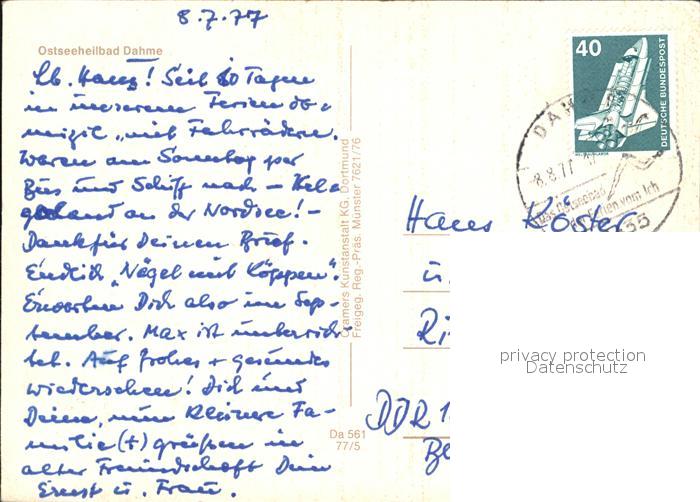 8.7.77
Ostseeheilbad Dahme
Lb. Hans! Seit 10 Tagen
in unserem Ferien do-
mizil, mit Fahrrädern.
Waren am Sonntag per
Bus und Schiff nach - Hel-
goland an der Nordsee! -
Dank für Deinen Brief.
Endlich "Nägel mit Köppen".
Erwarten Dich also im Sep-
tember. Max ist unterrich-
tet. Auf frohes + gesundes
Wiedersehen! Dich und
Deine, nun kleinere Fa-
milie (+) grüßen in
alter Freundschaft Dein
Ernst u. Frau.
Cramers Kunstanstalt KG. Dortmund
Freigeg. Reg.-Präs. Münster 7621/76
Da 561
77/5
40
DEUTSCHE BUNDESPOST
DAHME
8.8.77
Das Ostseebad
Ferien vom Ich
Hans Köster
u.
Ri
DDR 1
Be
privacy protection
Datenschutz